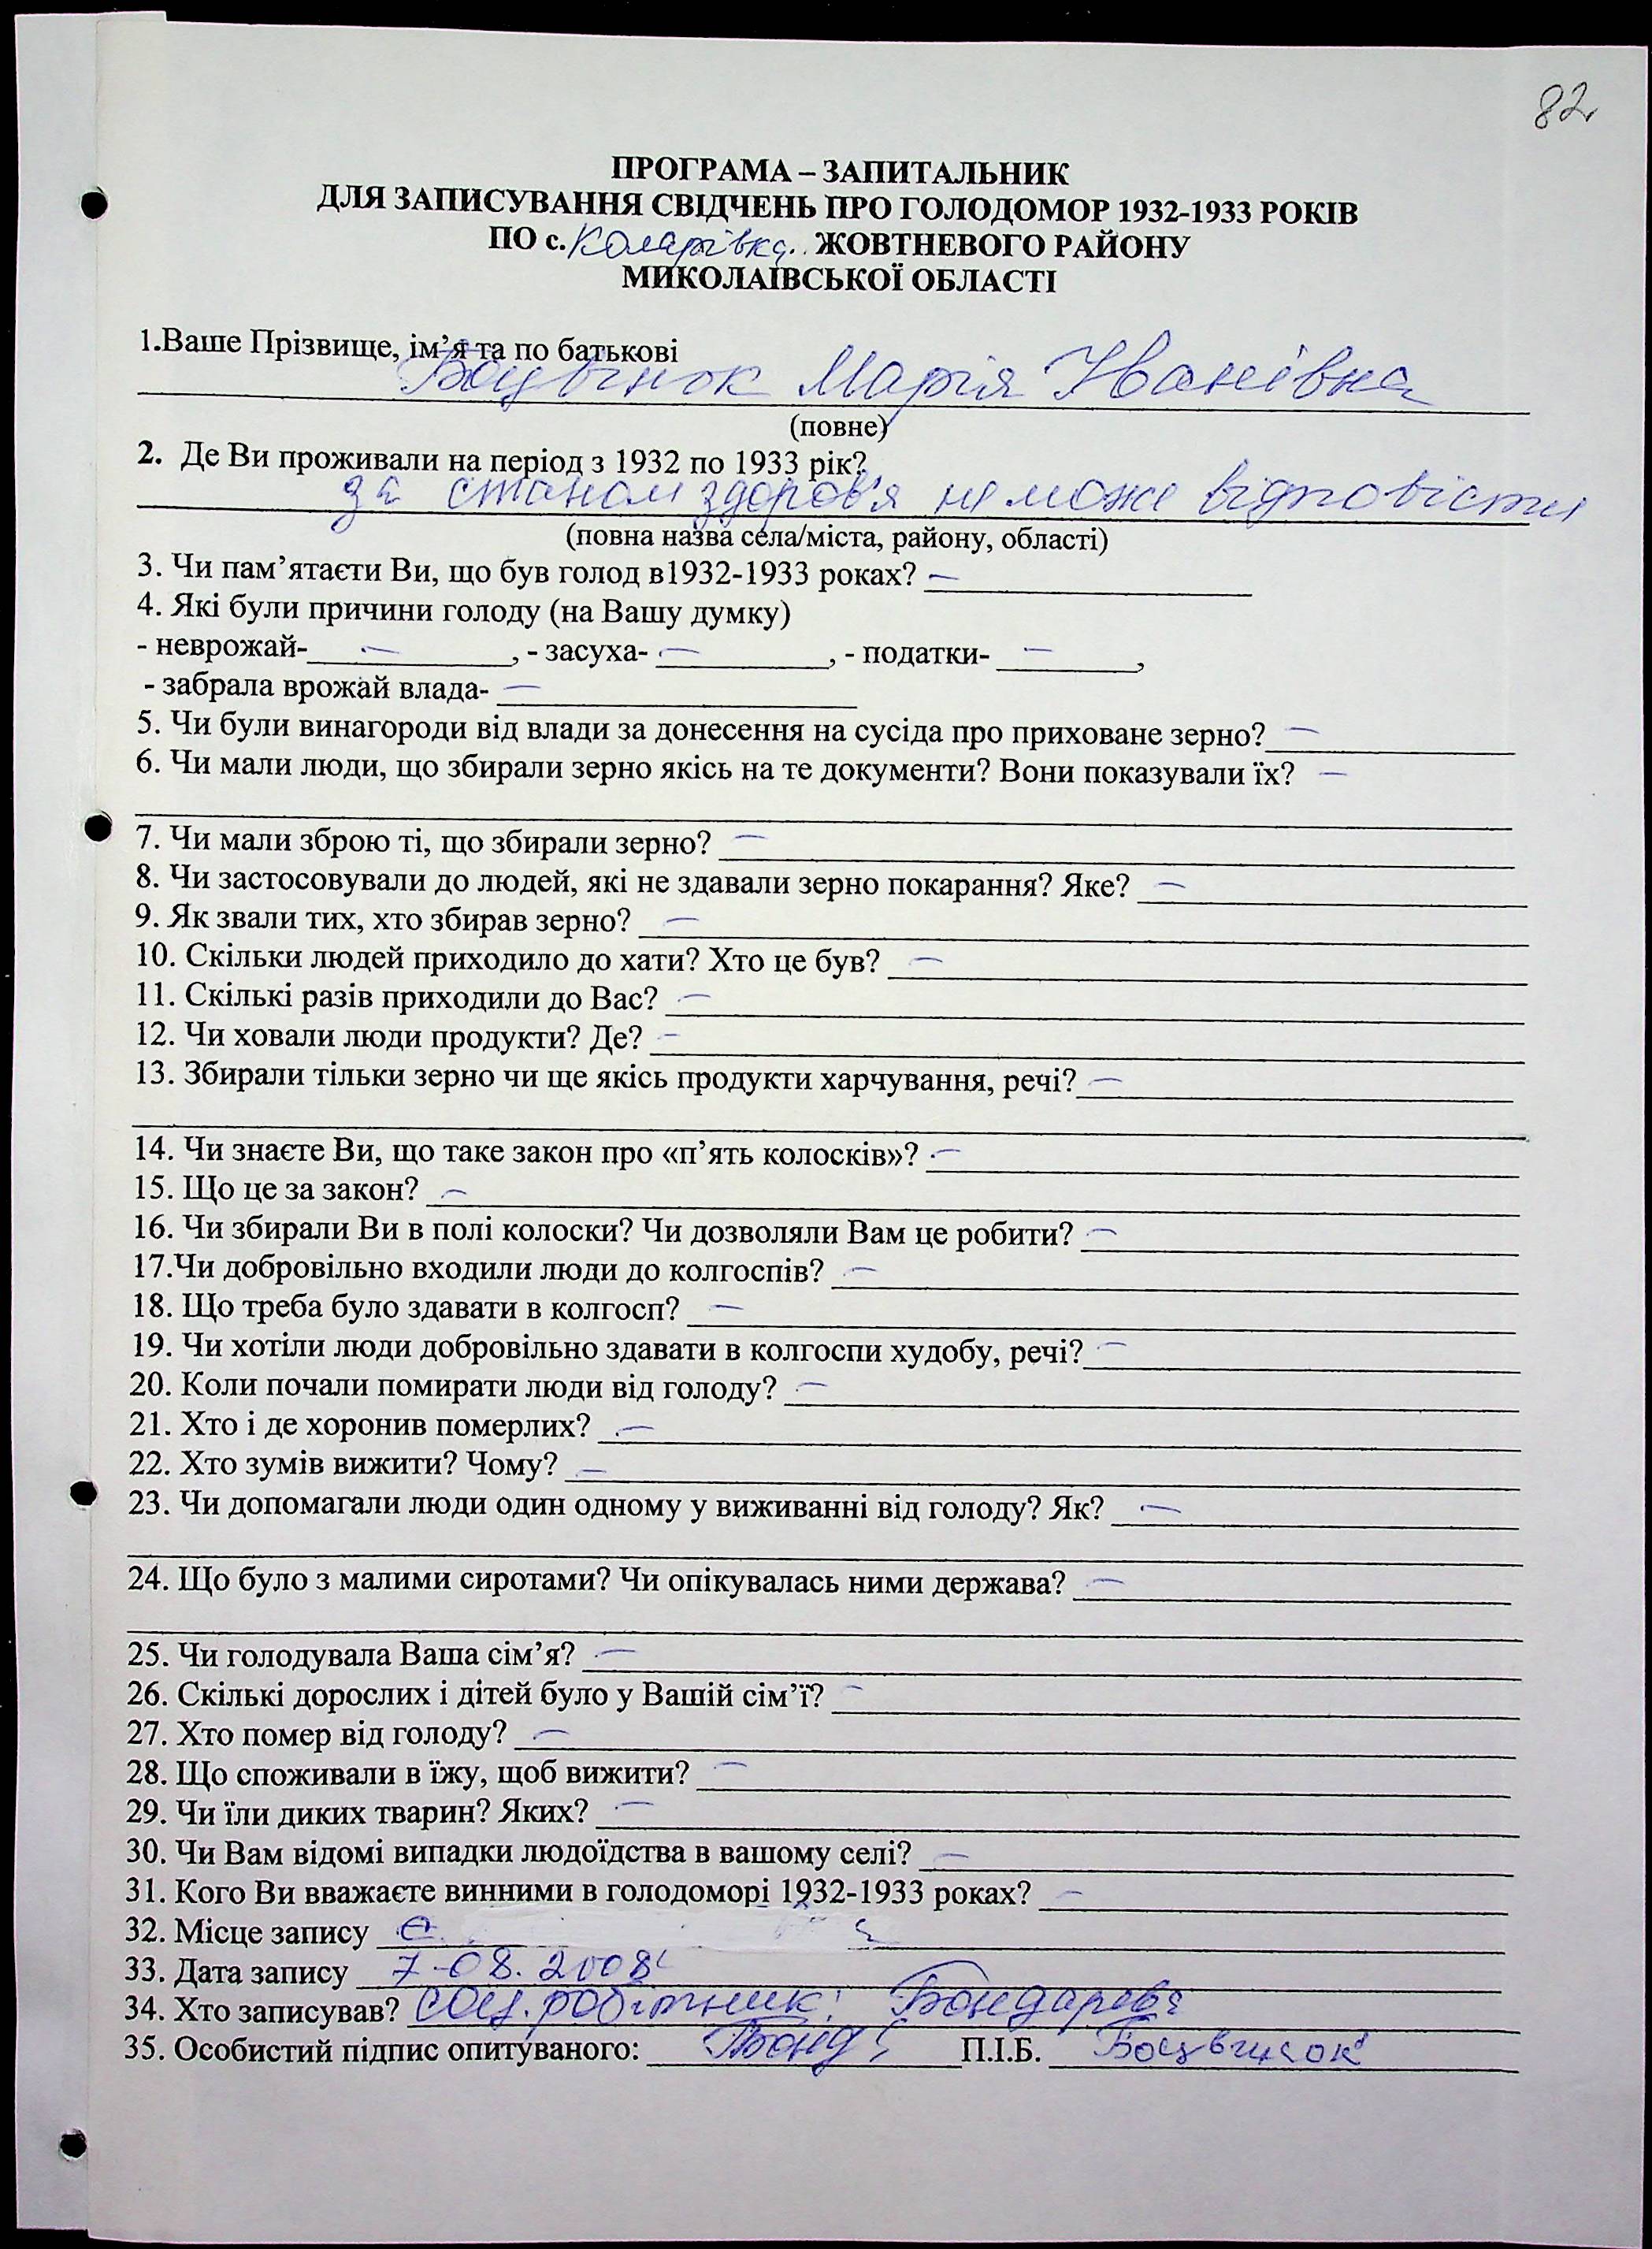 82
ПРОГРАМА – ЗАПИТАЛЬНИК
ДЛЯ ЗАПИСУВАННЯ СВІДЧЕНЬ ПРО ГОЛОДОМОР 1932-1933 РОКІВ
ПО с. Коларівка ЖОВТНЕВОГО РАЙОНУ
МИКОЛАЇВСЬКОЇ ОБЛАСТІ
1.Ваше Прізвище, ім’я та по батькові
Боцвінок Марія Іванівна
(повне)
2. Де Ви проживали на період з 1932 по 1933 рік?
за станом здоров'я не може відповісти
(повна назва села/міста, району, області)
3. Чи пам’ятаєти Ви, що був голод в1932-1933 роках? —
4. Які були причини голоду (на Вашу думку)
- неврожай- — , - засуха- — , - податки- — ,
- забрала врожай влада- —
5. Чи були винагороди від влади за донесення на сусіда про приховане зерно? —
6. Чи мали люди, що збирали зерно якісь на те документи? Вони показували їх? —
7. Чи мали зброю ті, що збирали зерно? —
8. Чи застосовували до людей, які не здавали зерно покарання? Яке? —
9. Як звали тих, хто збирав зерно? —
10. Скільки людей приходило до хати? Хто це був? —
11. Скількі разів приходили до Вас? —
12. Чи ховали люди продукти? Де? —
13. Збирали тільки зерно чи ще якісь продукти харчування, речі? —
14. Чи знаєте Ви, що таке закон про «п’ять колосків»? —
15. Що це за закон? —
16. Чи збирали Ви в полі колоски? Чи дозволяли Вам це робити? —
17.Чи добровільно входили люди до колгоспів? —
18. Що треба було здавати в колгосп? —
19. Чи хотіли люди добровільно здавати в колгоспи худобу, речі? —
20. Коли почали помирати люди від голоду? —
21. Хто і де хоронив померлих? —
22. Хто зумів вижити? Чому? —
23. Чи допомагали люди один одному у виживанні від голоду? Як? —
24. Що було з малими сиротами? Чи опікувалась ними держава? —
25. Чи голодувала Ваша сім’я? —
26. Скількі дорослих і дітей було у Вашій сім’ї? —
27. Хто помер від голоду? —
28. Що споживали в їжу, щоб вижити? —
29. Чи їли диких тварин? Яких? —
30. Чи Вам відомі випадки людоїдства в вашому селі? —
31. Кого Ви вважаєте винними в голодоморі 1932-1933 роках? —
32. Місце запису с.
33. Дата запису 7-08. 2008
34. Хто записував? соц. робітник: Бондарева
35. Особистий підпис опитуваного: Бонд П.І.Б. Боцвинок